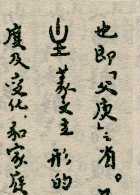 也即「父庚」之省。
篆文主形的
度及变化，和家庭